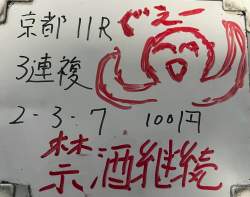 京都11R
ぐえー
3連複
2-3-7 100円
禁酒継続